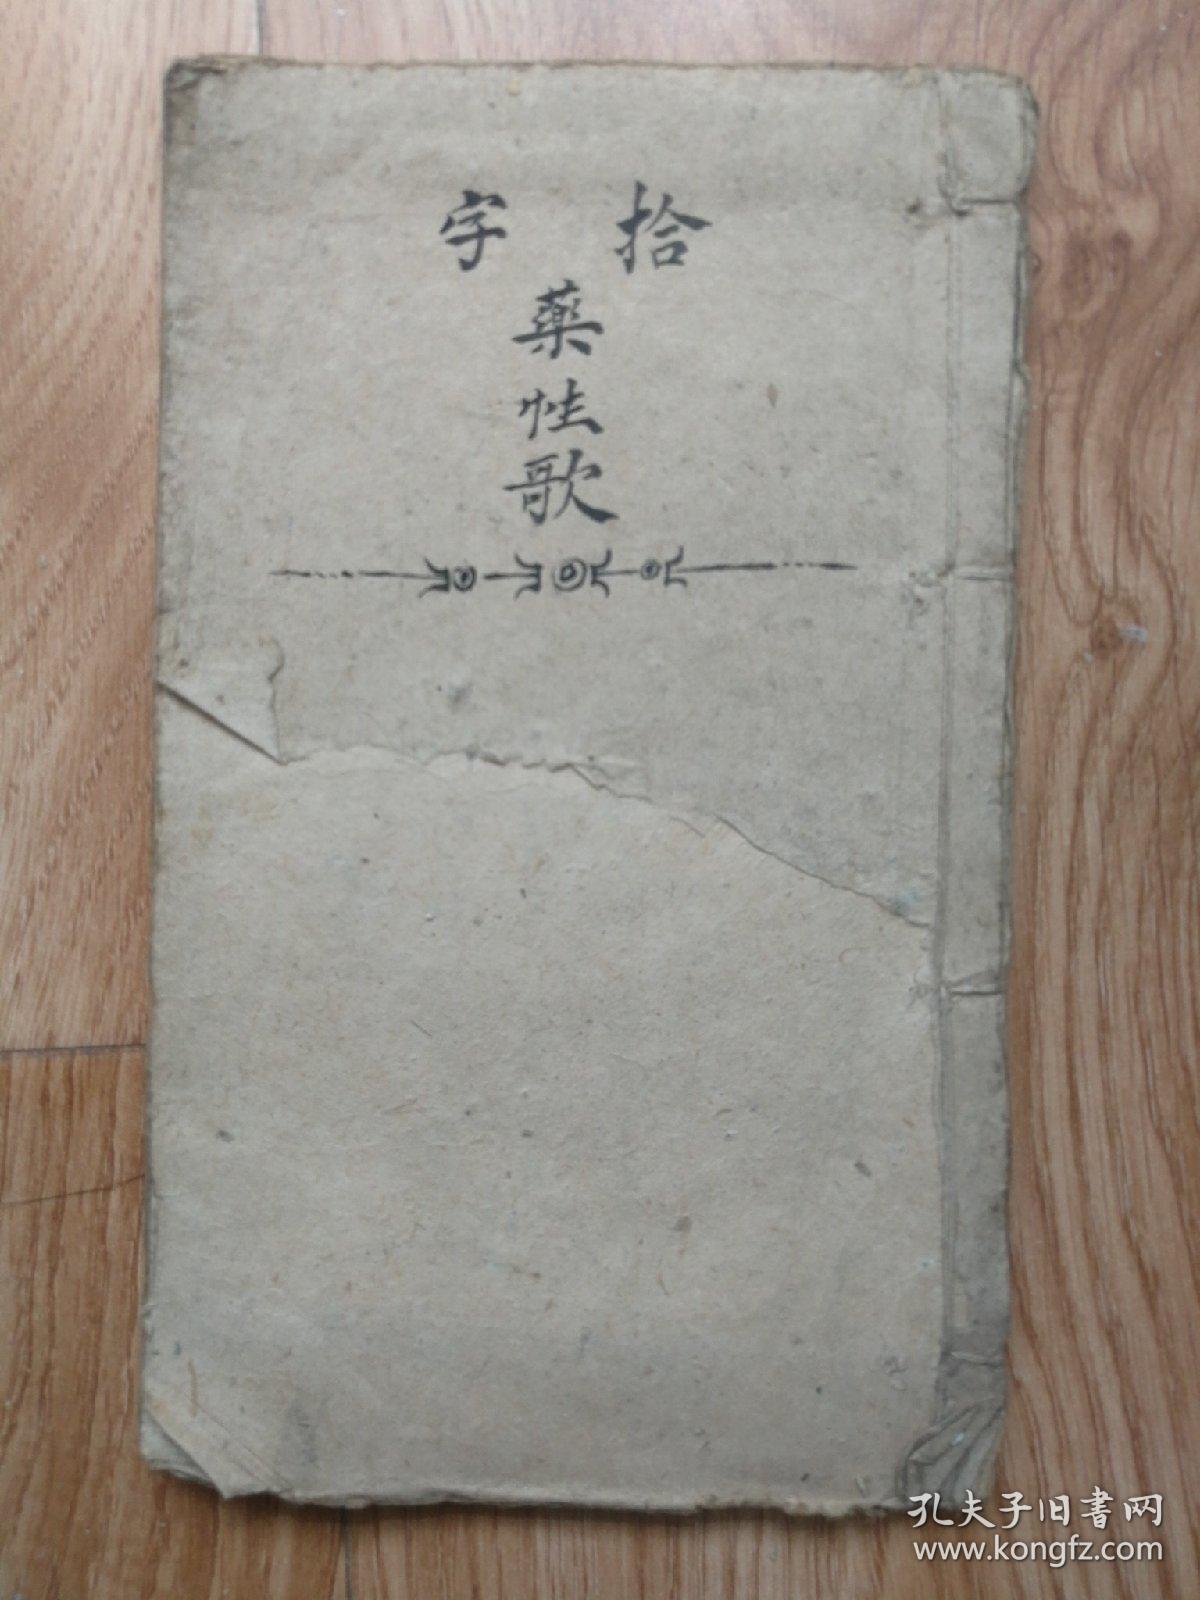 拾字
藥性歌
孔夫子旧書网
www.kongfz.com